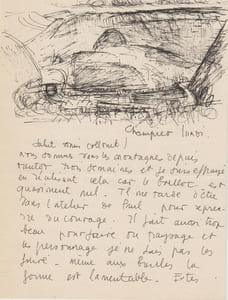 Champier lundi
Salut mon
nous sommes dans les montagnes depuis
nous demaines et je suis effrayé
en réalisant cela car le boulot est
quasiment nul. Il me tarde d'être
dans l'atelier de Paul pour repren
dre du courage. Il fait aussi trop
beau pour faire du paysage et
les personnages je ne sais pas les
faire. même aux boules la
forme est lamentable. Êtes